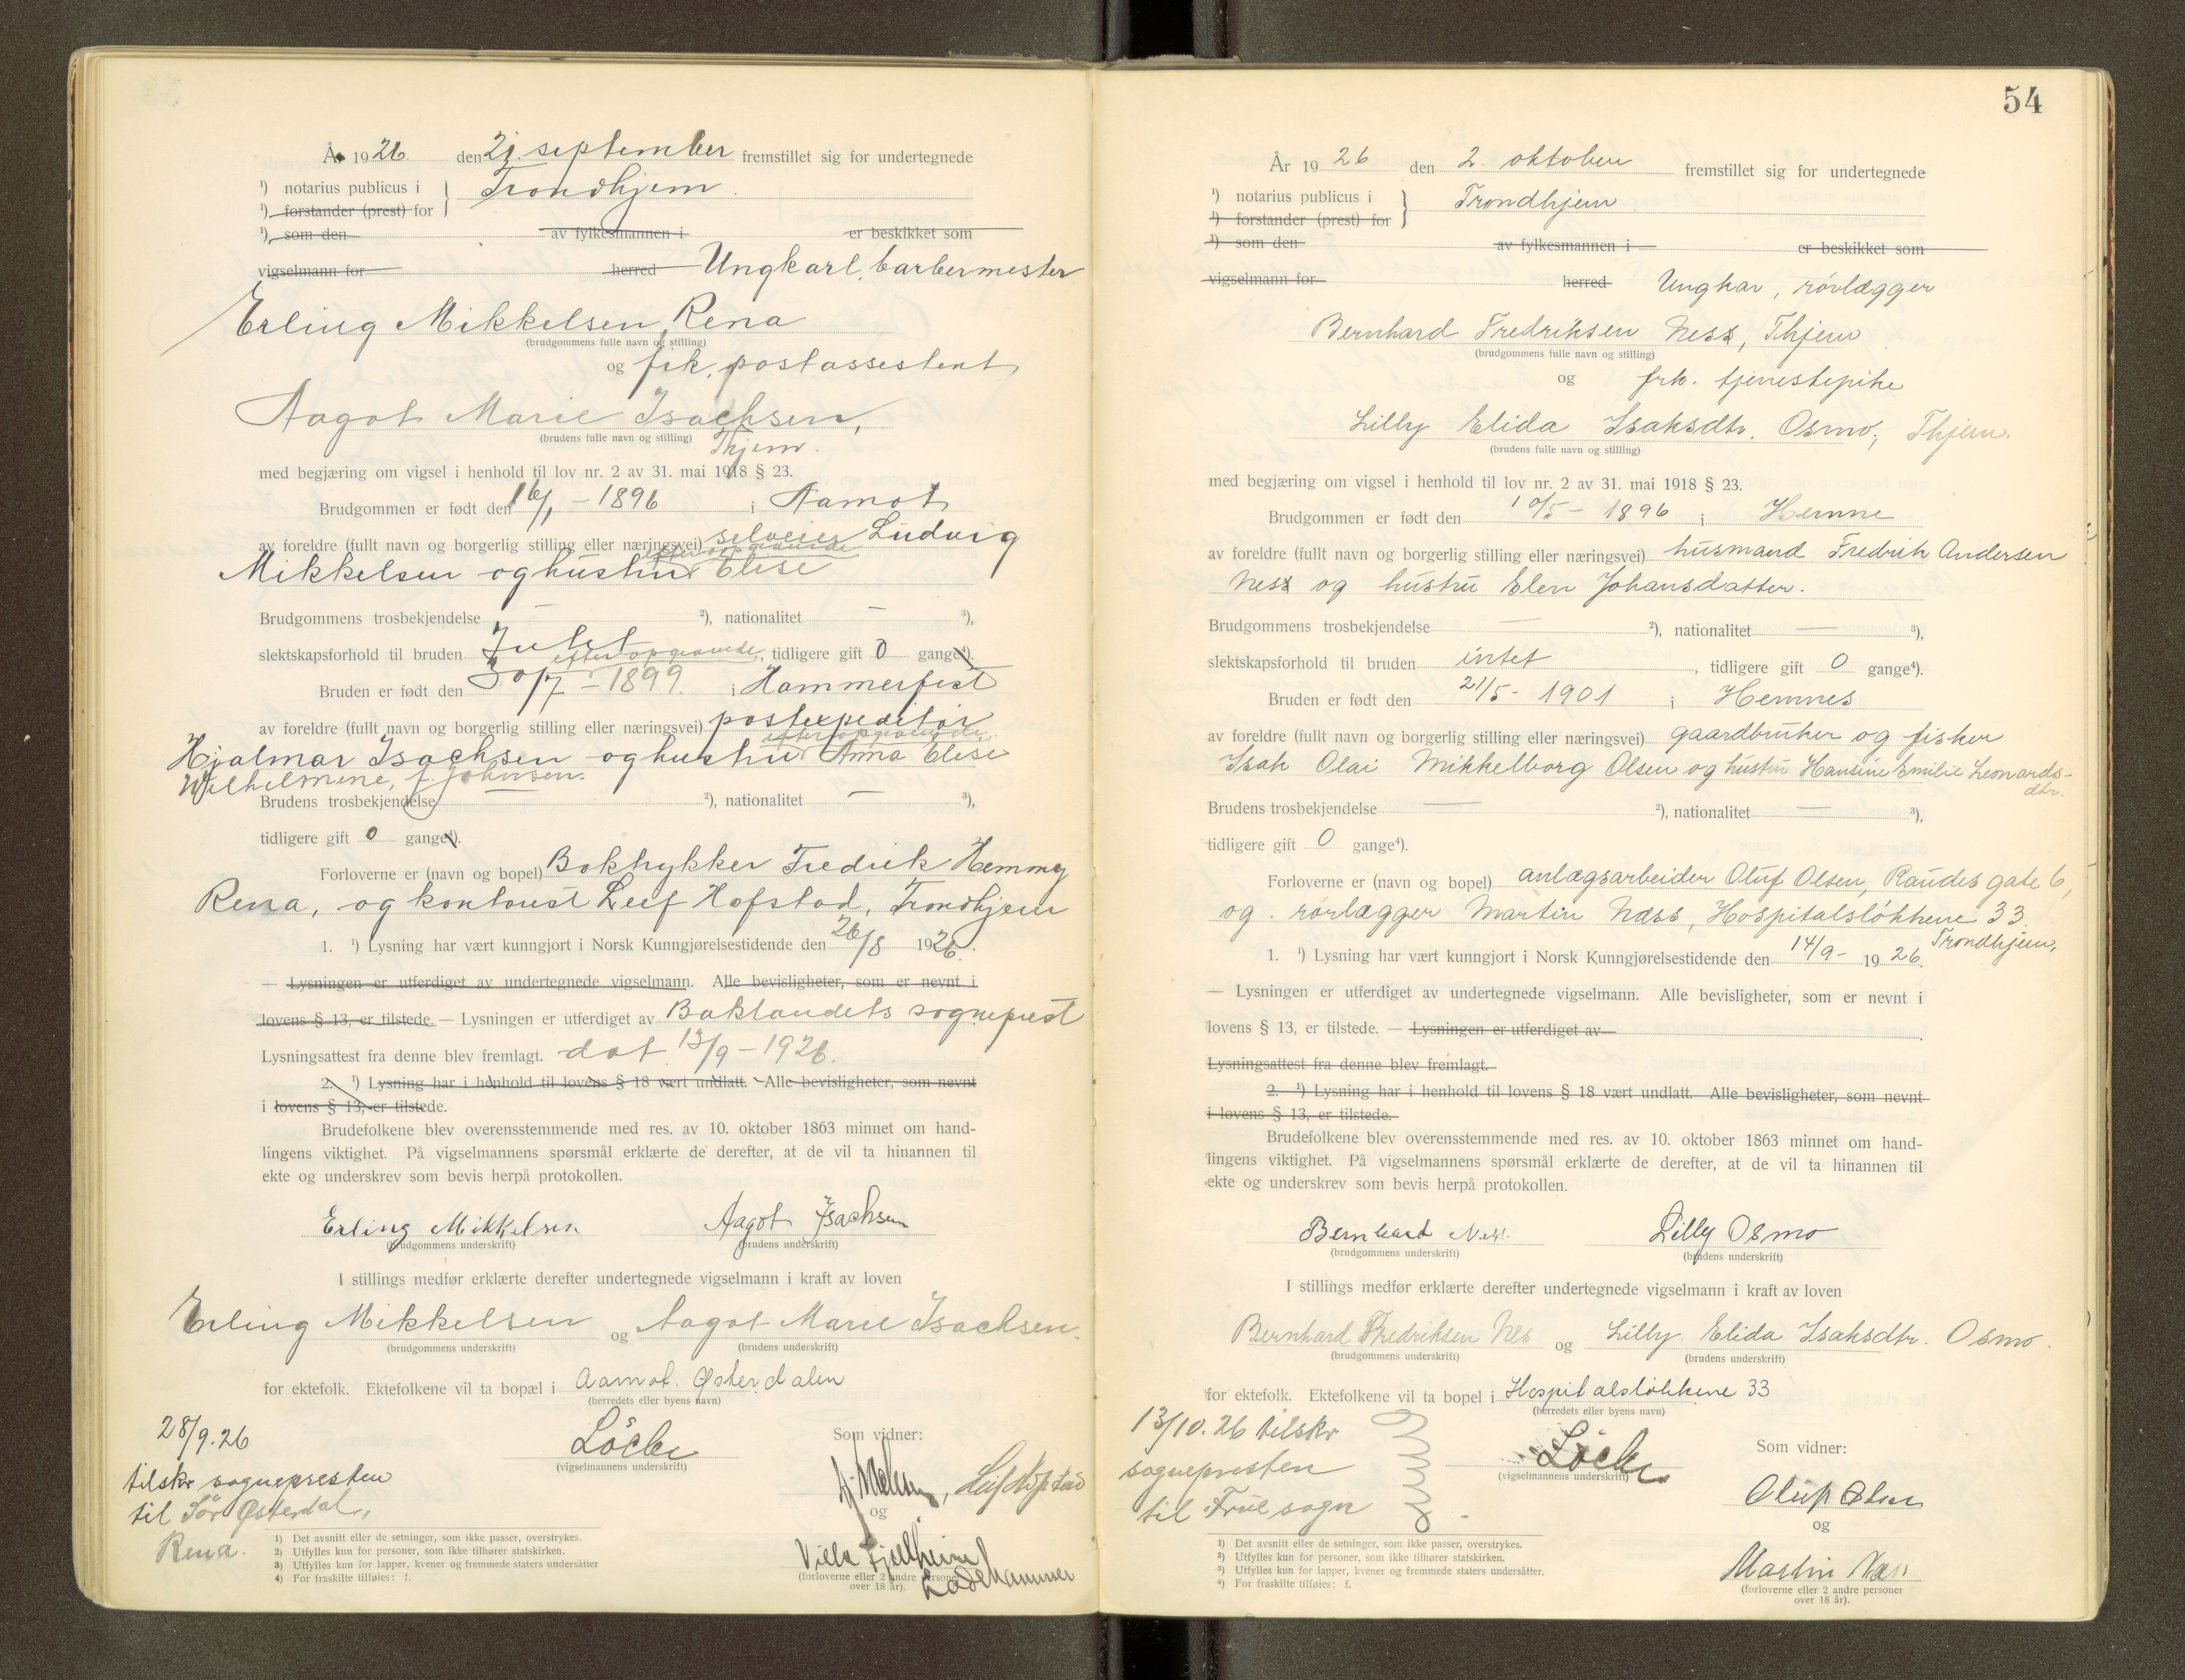 År 1926. den 21. september fremstillet sig for undertegnede
¹) notarius publicus i } Trondhjem.
¹) forstander (prest) for
¹) som den av fylkesmannen i er beskikket som
vigselmann for herred Ungkarl, barbermester
Erling Mikkelsen, Rena
(brudgommens fulle navn og stilling)
og frk. postassestent
Aagot Marie Isachsen,
(brudens fulle navn og stilling) Thjem.
med begjæring om vigsel i henhold til lov nr. 2 av 31. mai 1918 § 23.
Brudgommen er født den 16/1 – 1896 i Aamot
av foreldre (fullt navn og borgerlig stilling eller næringsvei) selveier Ludvig
efter opgivende
Mikkelsen og hustru Elise
Brudgommens trosbekjendelse — ²), nationalitet — ³),
slektskapsforhold til bruden Intet efter opgivende, tidligere gift 0 gange⁴).
Bruden er født den 30/7 – 1899. i Hammerfest
av foreldre (fullt navn og borgerlig stilling eller næringsvei) postexpeditør
efter opgivende
Hjalmar Isachsen og hustru Anna Elise
Wilhelmine, f. Johnsen.
Brudens trosbekjendelse ²), nationalitet — ³),
tidligere gift 0 gange⁴).
Forloverne er (navn og bopel) Boktrykker Fredrik Hemmey
Rena, og kontorist Leif Hofstad, Trondhjem
1. ¹) Lysning har vært kunngjort i Norsk Kunngjørelsestidende den 26/8 1926.
— Lysningen er utferdiget av undertegnede vigselmann. Alle bevisligheter, som er nevnt i
lovens § 13, er tilstede. — Lysningen er utferdiget av Baklandets sogneprest
Lysningsattest fra denne blev fremlagt. dat 13/9 – 1926.
2. ¹) Lysning har i henhold til lovens § 18 vært undlatt. Alle bevisligheter, som nevnt
i lovens § 13, er tilstede.
Brudefolkene blev overensstemmende med res. av 10. oktober 1863 minnet om hand-
lingens viktighet. På vigselmannens spørsmål erklærte de derefter, at de vil ta hinannen til
ekte og underskrev som bevis herpå protokollen.
Erling Mikkelsen Aagot Isachsen
(brudgommens underskrift) (brudens underskrift)
I stillings medfør erklærte derefter undertegnede vigselmann i kraft av loven
Erling Mikkelsen og Aagot Marie Isachsen.
(brudgommens underskrift) (brudens underskrift)
for ektefolk. Ektefolkene vil ta bopæl i Aamot. Østerdalen
(herredets eller byens navn)
28/9.26
tilskr sognepresten
til Sør Østerdal,
Rena.
Löcke
(vigselmannens underskrift)
Som vidner:
Leif Hofstad
og
Villa Fjellheim
Ladehammer
(forloverne eller 2 andre personer
over 18 år).
1) Det avsnitt eller de setninger, som ikke passer, overstrykes.
2) Utfylles kun for personer, som ikke tilhører statskirken.
3) Utfylles kun for lapper, kvener og fremmede staters undersåtter
4) For fraskilte tilføies: f.
54
År 1926 den 2. oktober fremstillet sig for undertegnede
¹) notarius publicus i } Trondhjem
¹) forstander (prest) for
¹) som den av fylkesmannen i er beskikket som
vigselmann for herred Ungkar, rørlægger
Bernhard Fredriksen Ness, Thjem
(brudgommens fulle navn og stilling)
og frk. tjenestepike
Lilly Elida Isaksdtr. Osmo, Thjem.
(brudens fulle navn og stilling)
med begjæring om vigsel i henhold til lov nr. 2 av 31. mai 1918 § 23.
Brudgommen er født den 10/5 – 1896 i Hemne
av foreldre (fullt navn og borgerlig stilling eller næringsvei) husmand Fredrik Andersen
Ness og hustru Elen Johansdatter.
Brudgommens trosbekjendelse — ²), nationalitet — ³),
slektskapsforhold til bruden intet, tidligere gift 0 gange⁴).
Bruden er født den 21/5 – 1901 i Hemnes
av foreldre (fullt navn og borgerlig stilling eller næringsvei) gaardbruker og fisker
Isak Olai Mikkelborg Olsen og hustru Hansine Emilie Leonards-
dtr.
Brudens trosbekjendelse — ²), nationalitet — ³),
tidligere gift 0 gange⁴).
Forloverne er (navn og bopel) anlægsarbeider Oluf Olsen, Raudes gate 6,
og rørlægger Martin Næss, Hospitalsløkkene 33
Trondhjem,
1. ¹) Lysning har vært kunngjort i Norsk Kunngjørelsestidende den 14/9 – 1926.
— Lysningen er utferdiget av undertegnede vigselmann. Alle bevisligheter, som er nevnt i
lovens § 13, er tilstede. — Lysningen er utferdiget av
Lysningsattest fra denne blev fremlagt.
2. ¹) Lysning har i henhold til lovens § 18 vært undlatt. Alle bevisligheter, som nevnt
i lovens § 13, er tilstede.
Brudefolkene blev overensstemmende med res. av 10. oktober 1863 minnet om hand-
lingens viktighet. På vigselmannens spørsmål erklærte de derefter, at de vil ta hinannen til
ekte og underskrev som bevis herpå protokollen.
Bernhard Ness. Lilly Osmo
(brudgommens underskrift) (brudens underskrift)
I stillings medfør erklærte derefter undertegnede vigselmann i kraft av loven
Bernhard Fredriksen Nes og Lilly Elida Isaksdtr. Osmo.
(brudgommens underskrift) (brudens underskrift)
for ektefolk. Ektefolkene vil ta bopel i Hospitalsløkkene 33
(herredets eller byens navn)
13/10.26 tilskr
sognepresten
til Frue sogn
Löcke
(vigselmannens underskrift)
Som vidner:
Oluf Olsen
og
Martin Næss
(forloverne eller 2 andre personer
over 18 år).
¹) Det avsnitt eller de setninger, som ikke passer, overstrykes.
²) Utfylles kun for personer, som ikke tilhører statskirken.
³) Utfylles kun for lapper, kvener og fremmede staters undersåtter.
⁴) For fraskilte tilføies: f.